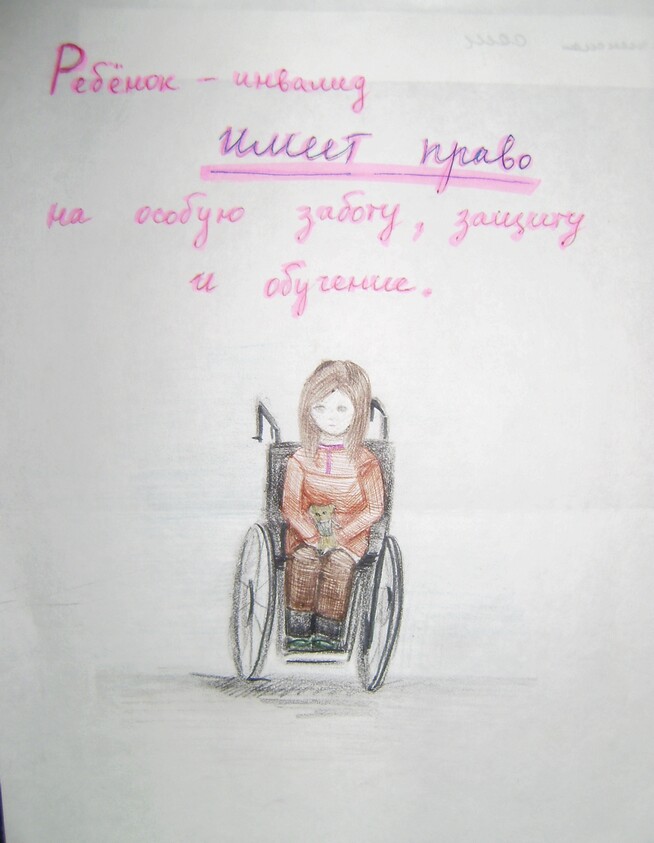 Ребёнок - инвалид
имеет право
на особую заботу, защиту
и обучение.